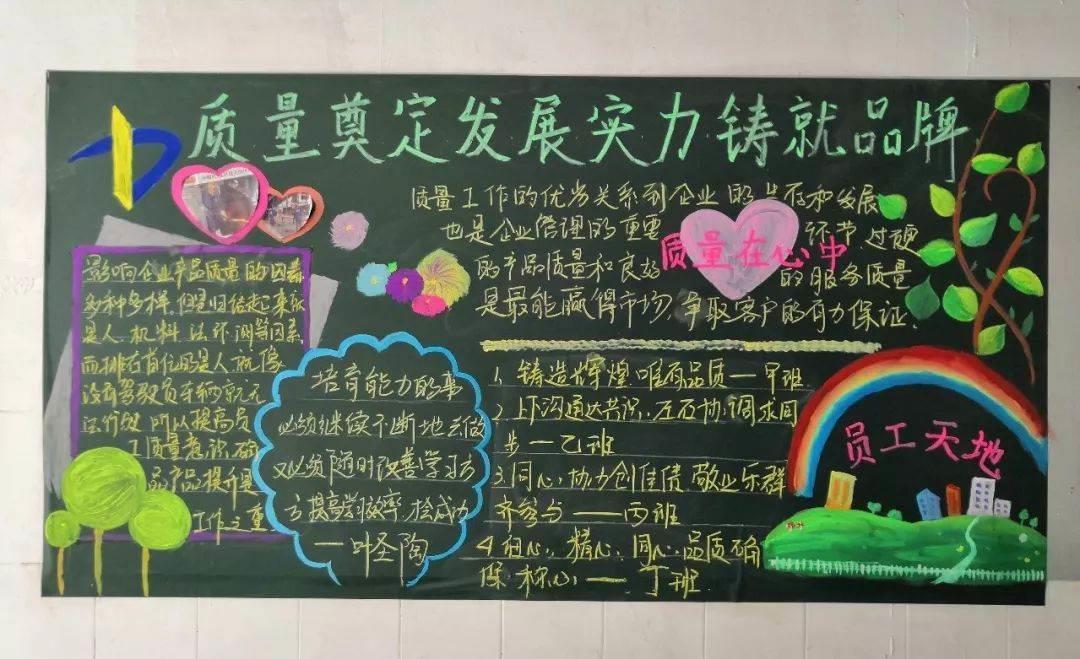 质量奠定发展实力铸就品牌
质量工作的优劣关系到企业的生存和发展
也是企业管理的重要 环节 过硬
的产品质量和良好 的服务质量
是最能赢得市场 争取客户的有力保证.
质量在心中
影响企业产品质量的因素
多种多样,但是归结起来就
是人、机、料、法、环、测等因素
而排在首位的是人 就像
没有驾驶员车辆就无
法行驶 所以提高员
工质量意识 确
品产品提升是
工作之重
培育能力的事
必须继续不断地去做
又必须随时改善学习方
提高学习效率,才会成功
——叶圣陶
1、铸造辉煌 唯有品质—甲班
2、上下沟通达共识,左右协调求同
步—乙班
3.同心协力创佳绩 敬业乐群
齐参与——丙班
4.细心,精心,同心.品质确
保,称心——丁班
员工天地